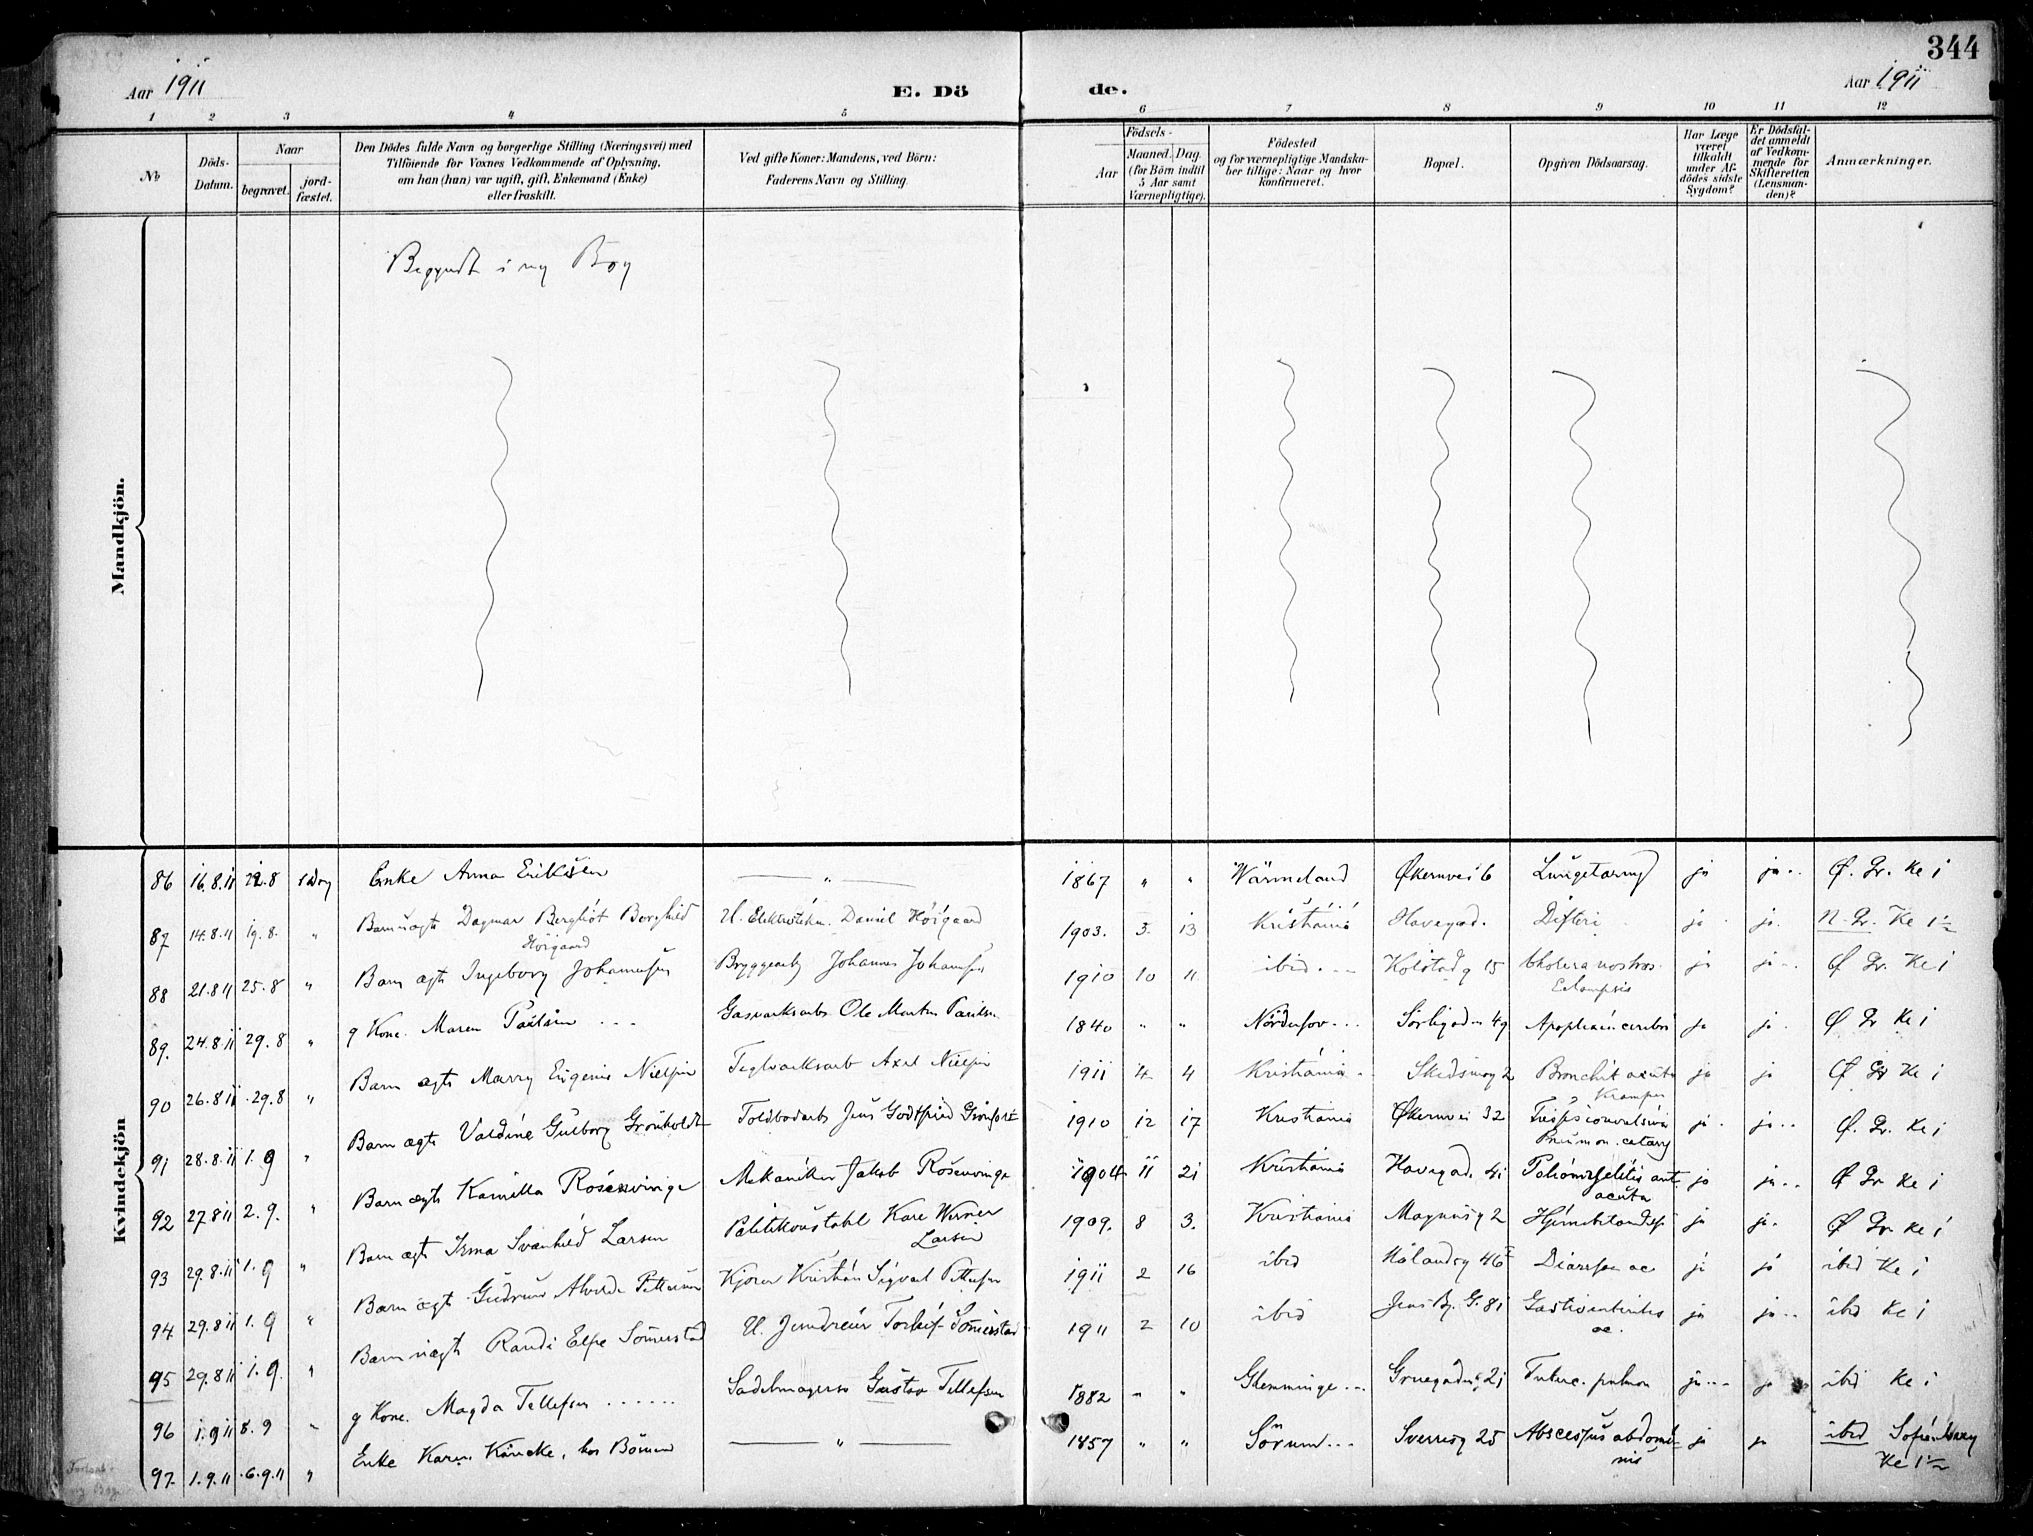 344
Aar 1911
E. Dö
de.
Aar 1911
1 2 3 4 5 6 7 8 9 10 11 12
No
Döds-Datum.
Naar
begravet.
jord-fæstet.
Den Dödes fulde Navn og borgerlige Stilling (Næringsvei) med
Tilföiende for Voxnes Vedkommende af Oplysning,
om han (hun) var ugift, gift, Enkemand (Enke)
eller fraskilt.
Ved gifte Koner: Mandens, ved Börn:
Faderens Navn og Stilling.
Födsels-
Aar
Maaned. Dag.
(for Börn indtil
5 Aar samt
Værnepligtige).
Födested
og for værnepligtige Mandska-
ber tillige: Naar og hvor
konfirmeret.
Bopæl.
Opgiven Dödsaarsag.
Har Læge
været
tilkaldt
under Af-
dödes sidste
Sygdom?
Er Dödsfal-
det anmeldt
af Vedkom-
mende for
Skifteretten
(Lensman-
den)?
Anmærkninger.
Mandkjön.
Begyndt i ny Bog
Kvindekjön
86 16.8.11 22.8 Enke Anna Eriksen — " — 1867 " " Wärmeland Økernvei 6 Lungetæring ja ja Ø. Gr. Ke 1
87 14.8.11 19.8. " Barn uægte Dagmar Bergliot Borghild Höigaard U. Elektrotekn. Daniel Höigaard 1903. 3. 13 Kristiania Havegad. Difteri ja ja. N. Gr. Ke 1
88 21.8.11 25.8 " Barn ægte Ingeborg Johannesen Bryggearb Johannes Johannesen 1910 10 11 ibid Kolstadg 15 Cholera nostras. Eclampsis ja ja Ø Gr. Ke 1
89. 24.8.11 29.8 " g Kone. Maren Paulsen Gasværksarb Ole Martin Paulsen 1840 " " Sörligaden 49 Apoplexia cerebri ja ja Ø Gr Ke 1
90 26.8.11 29.8 " Barn ægte Marry Eugenie Nielsen Teglværksarb Axel Nielsen 1911 4 4 Kristiania Skedsmog 2 Bronchit acuta Kramper ja ja Ø Gr Ke 1
91 28.8.11 1.9 " Barn ægte Valdine Gulborg Grönholdt Toldbodarb Jens Godtfred 1910 12 17 Kristiania Økernvei 32 Pneumon. catarrh ja ja Ø. Gr. Ke 1
92 27.8.11 2.9. " Barn ægte Kamilla Rosenvinge Mekaniker Jakob Rosenvinge 1904 11 21 Kristiania Havegad. 41 Poliomyelitis ant. acuta ja ja Ø Gr Ke 1
93 29.8.11 1.9 " Barn ægte Irma Svanhild Larsen Politikonstabl Kare Werner Larsen 1909. 8 3. Kristiania Magnusg 2 ja ja. Ø Gr. Ke 1
94 29.8.11 1.9 " Barn ægte Gudrun Alvilde Pettersen Kjörer Kristian Sigvart Pettersen 1911 2 16 ibid Hölandsg 46 Diarrhoe ac ja ja ibid Ke 1
95 29.8.11 1.9. " Barn uægte Randi Else Sömerstad U. 1911 2 10 ibid Jens Bj. G. 81 Gastroenteritis ac. ja ja ibid Ke 1
96 1.9.11 8.9 " g Kone. Magda Tellefsen Sadelmagersv Gustav Tellefsen 1882 " " Glemminge Gruegaden 21 Tuberc. pulmon ja ja ibid Ke 1
97. 1.9.11 6.9.11 " Enke Karen Köncke, hos Börnene — " — 1857 " " Sörum Sverresg 25 Abscessus abdominis ja ja ibid Ke 1